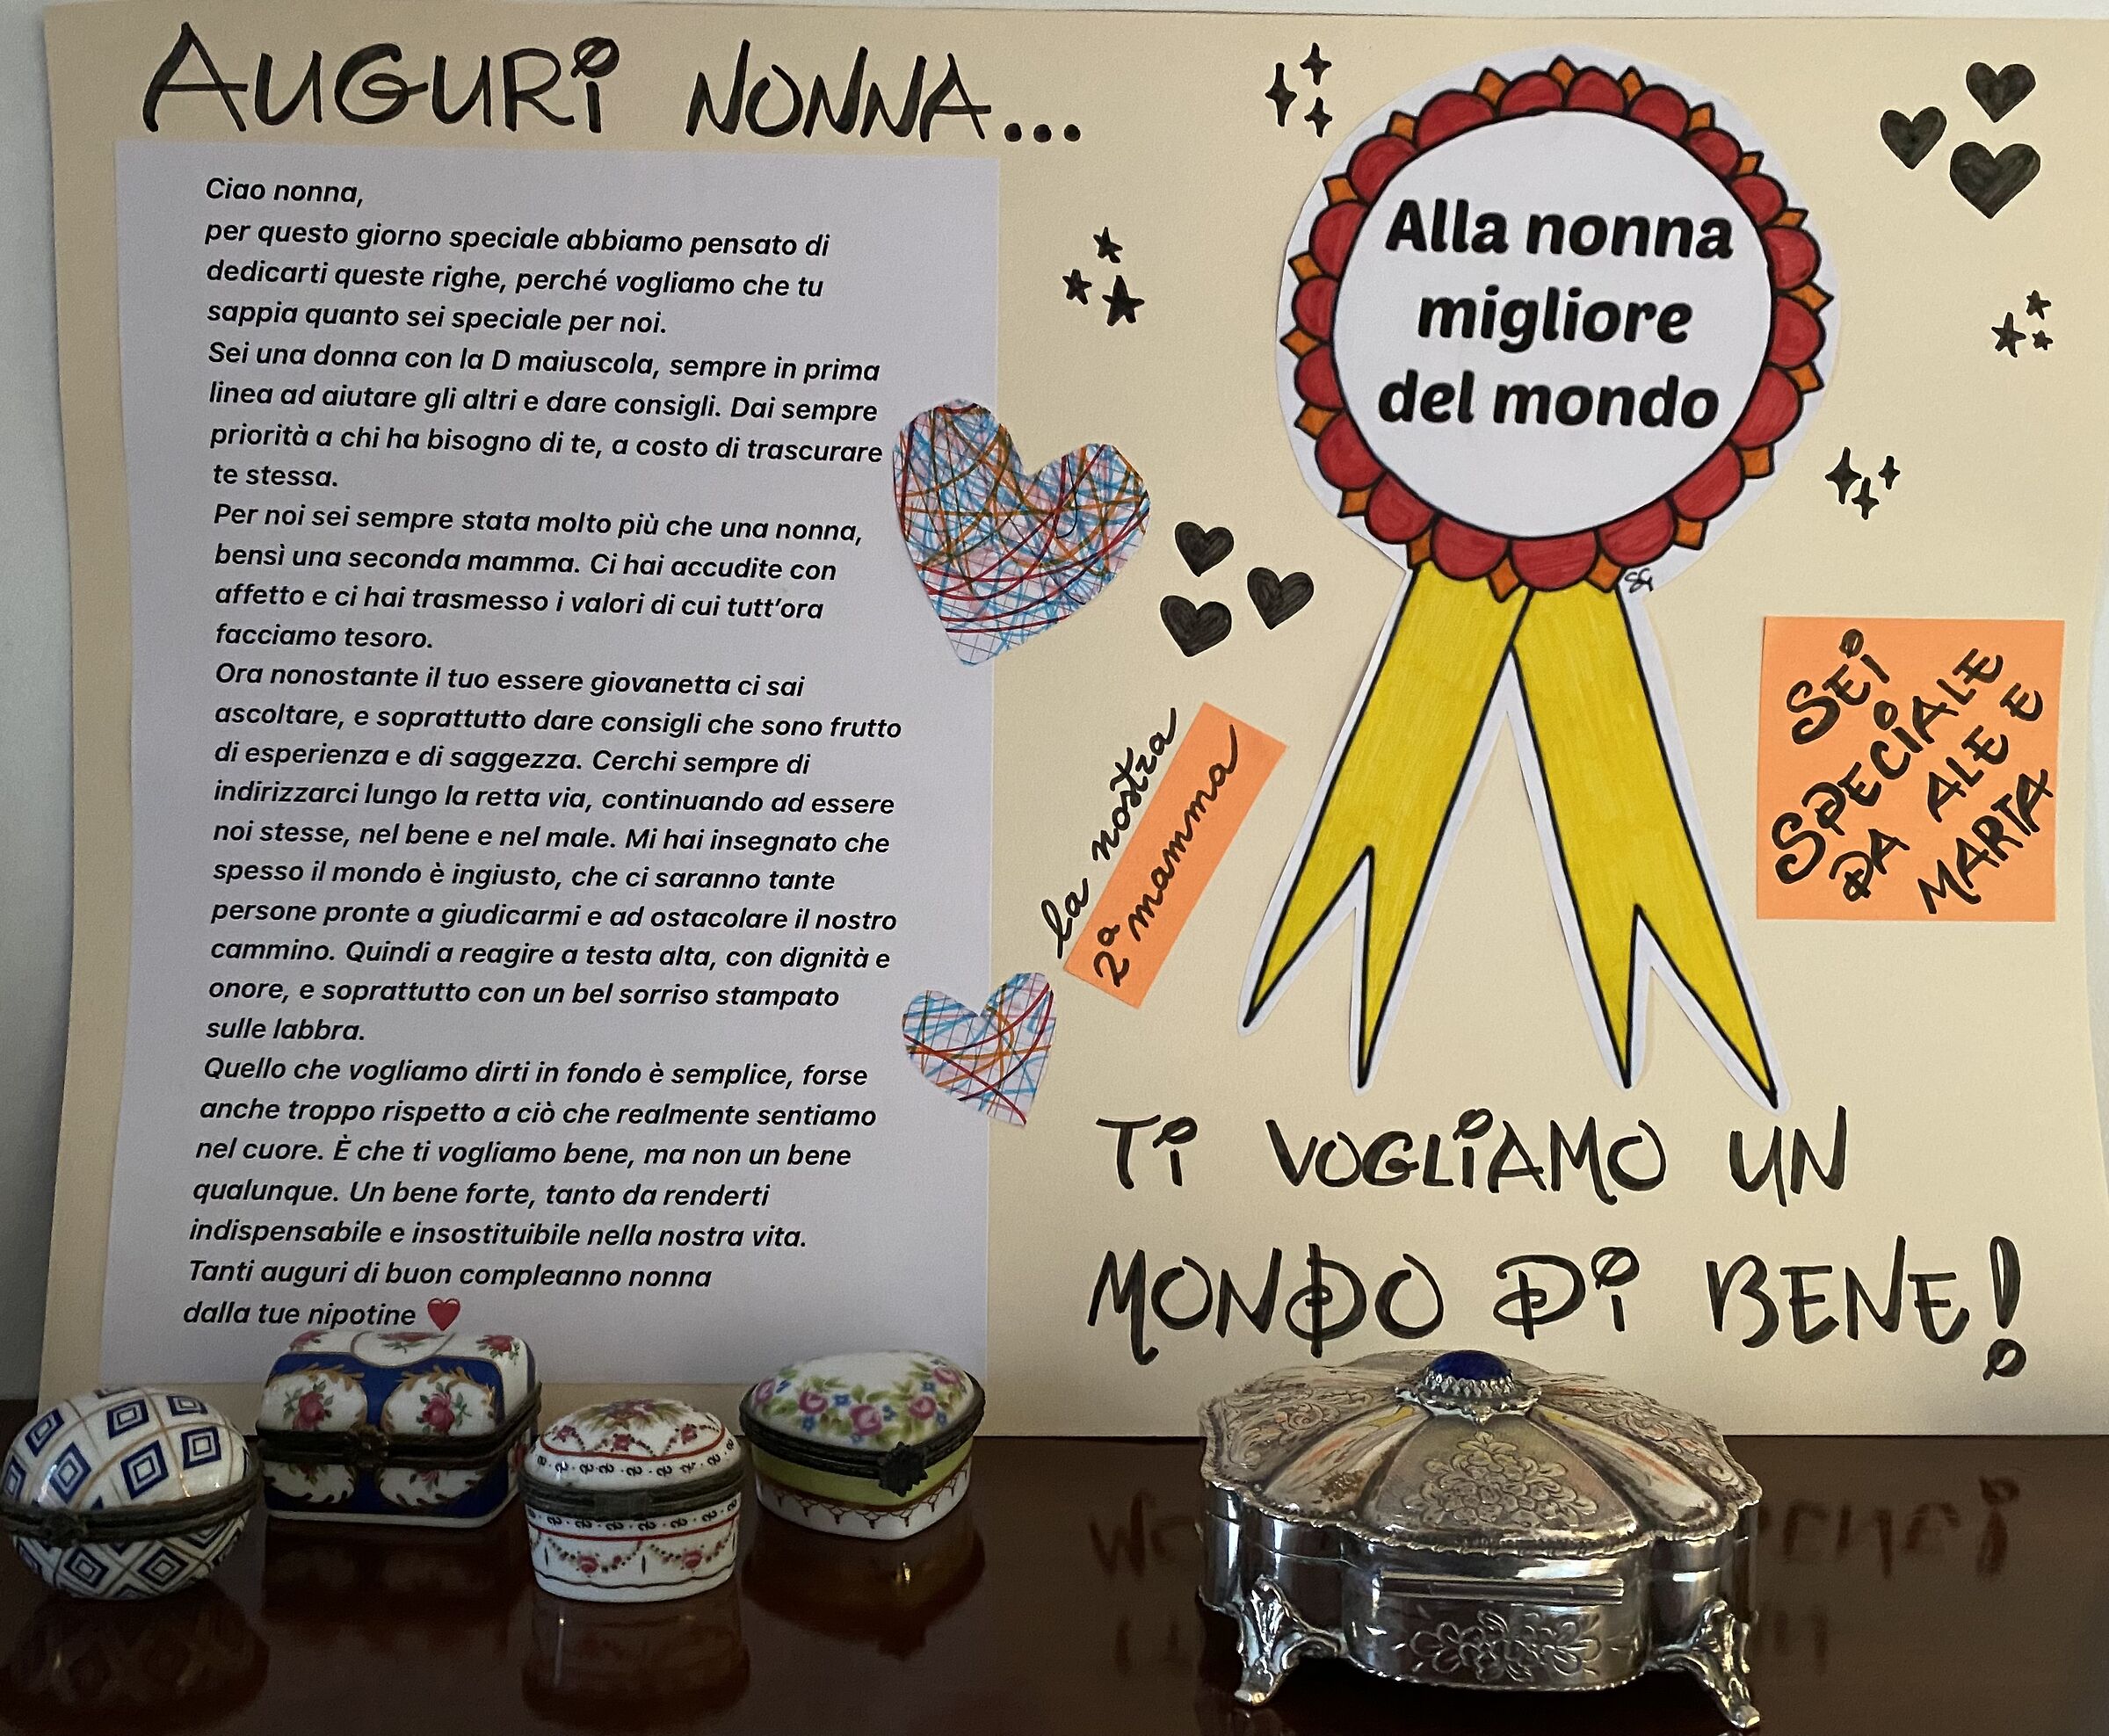 AUGURI NONNA...
Ciao nonna,
per questo giorno speciale abbiamo pensato di
dedicarti queste righe, perché vogliamo che tu
sappia quanto sei speciale per noi.
Sei una donna con la D maiuscola, sempre in prima
linea ad aiutare gli altri e dare consigli. Dai sempre
priorità a chi ha bisogno di te, a costo di trascurare
te stessa.
Per noi sei sempre stata molto più che una nonna,
bensì una seconda mamma. Ci hai accudite con
affetto e ci hai trasmesso i valori di cui tutt’ora
facciamo tesoro.
Ora nonostante il tuo essere giovanetta ci sai
ascoltare, e soprattutto dare consigli che sono frutto
di esperienza e di saggezza. Cerchi sempre di
indirizzarci lungo la retta via, continuando ad essere
noi stesse, nel bene e nel male. Mi hai insegnato che
spesso il mondo è ingiusto, che ci saranno tante
persone pronte a giudicarmi e ad ostacolare il nostro
cammino. Quindi a reagire a testa alta, con dignità e
onore, e soprattutto con un bel sorriso stampato
sulle labbra.
Quello che vogliamo dirti in fondo è semplice, forse
anche troppo rispetto a ciò che realmente sentiamo
nel cuore. È che ti vogliamo bene, ma non un bene
qualunque. Un bene forte, tanto da renderti
indispensabile e insostituibile nella nostra vita.
Tanti auguri di buon compleanno nonna
dalla tue nipotine ❤️
Alla nonna
migliore
del mondo
la nostra
2ª mamma
SEI
SPECIALE
DA ALE E
MARTA
TI VOGLIAMO UN
MONDO DI BENE!